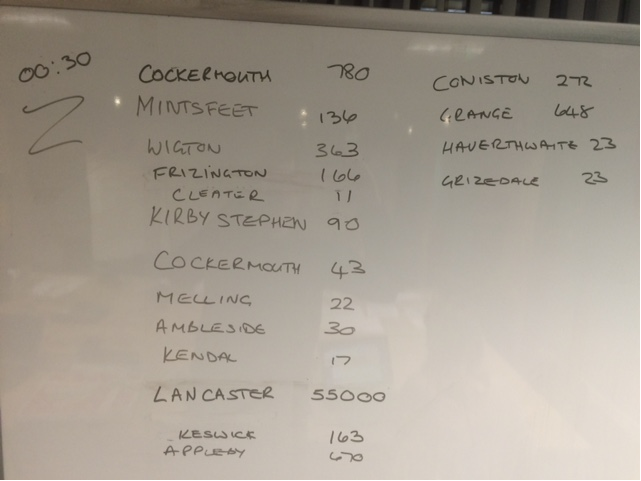 00:30
COCKERMOUTH 780
MINTSFEET 136
WIGTON 363
FRIZINGTON 166
CLEATER 11
KIRBY STEPHEN 90
COCKERMOUTH 43
MELLING 22
AMBLESIDE 30
KENDAL 17
LANCASTER 55000
KESWICK 163
APPLEBY 670
CONISTON 272
GRANGE 648
HAVERTHWAITE 23
GRIZEDALE 23